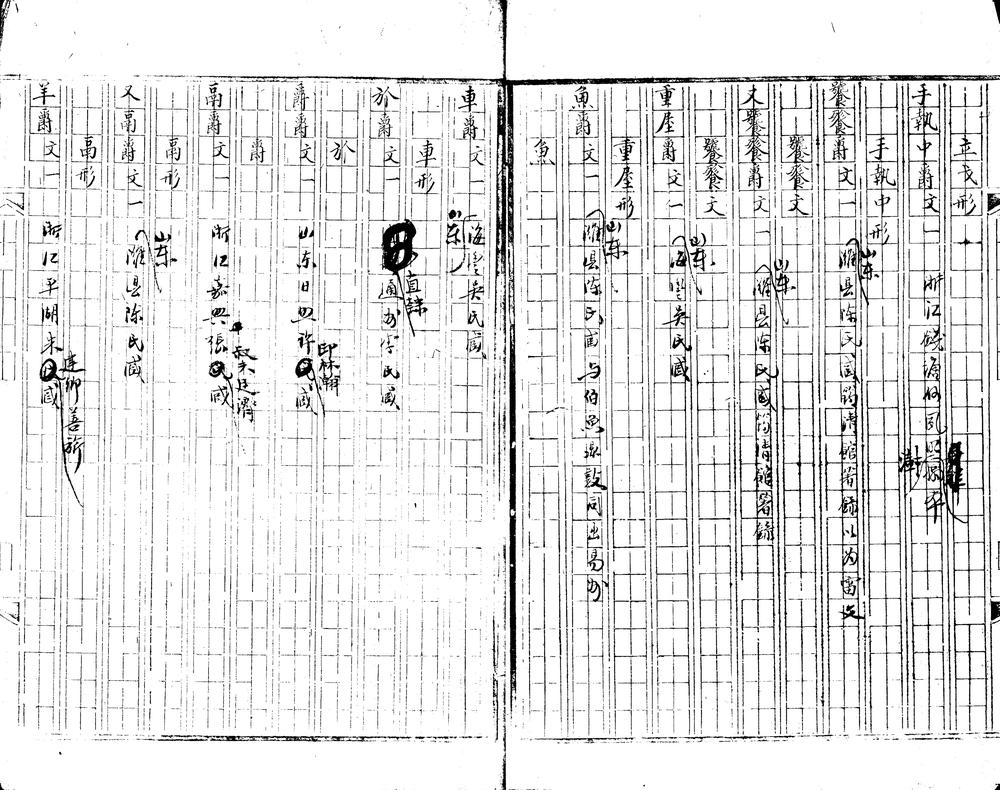 立戈形
手執中爵文一 浙江錢
手執中形
饕餮爵文一 山东濰县陈氏藏筠清館著錄以为雷文
饕餮文
又饕餮爵文一 山东濰县陈氏藏筠清館著錄
饕餮文
重屋爵文一 山东海豐吳氏藏
重屋形
魚爵文一 山东濰县陈氏藏与伯魚鼎敦同出易州
魚
車爵文一 山东海豐吳氏藏
車形
於爵文一 直隸通州李氏藏
於
爵文一 山东日照許印林瀚藏
爵
鬲爵文一 浙江嘉興張叔未廷濟藏
鬲形
又鬲爵文一 山东濰县陈氏藏
鬲形
羊爵文一 浙江平湖朱建卿善旂藏